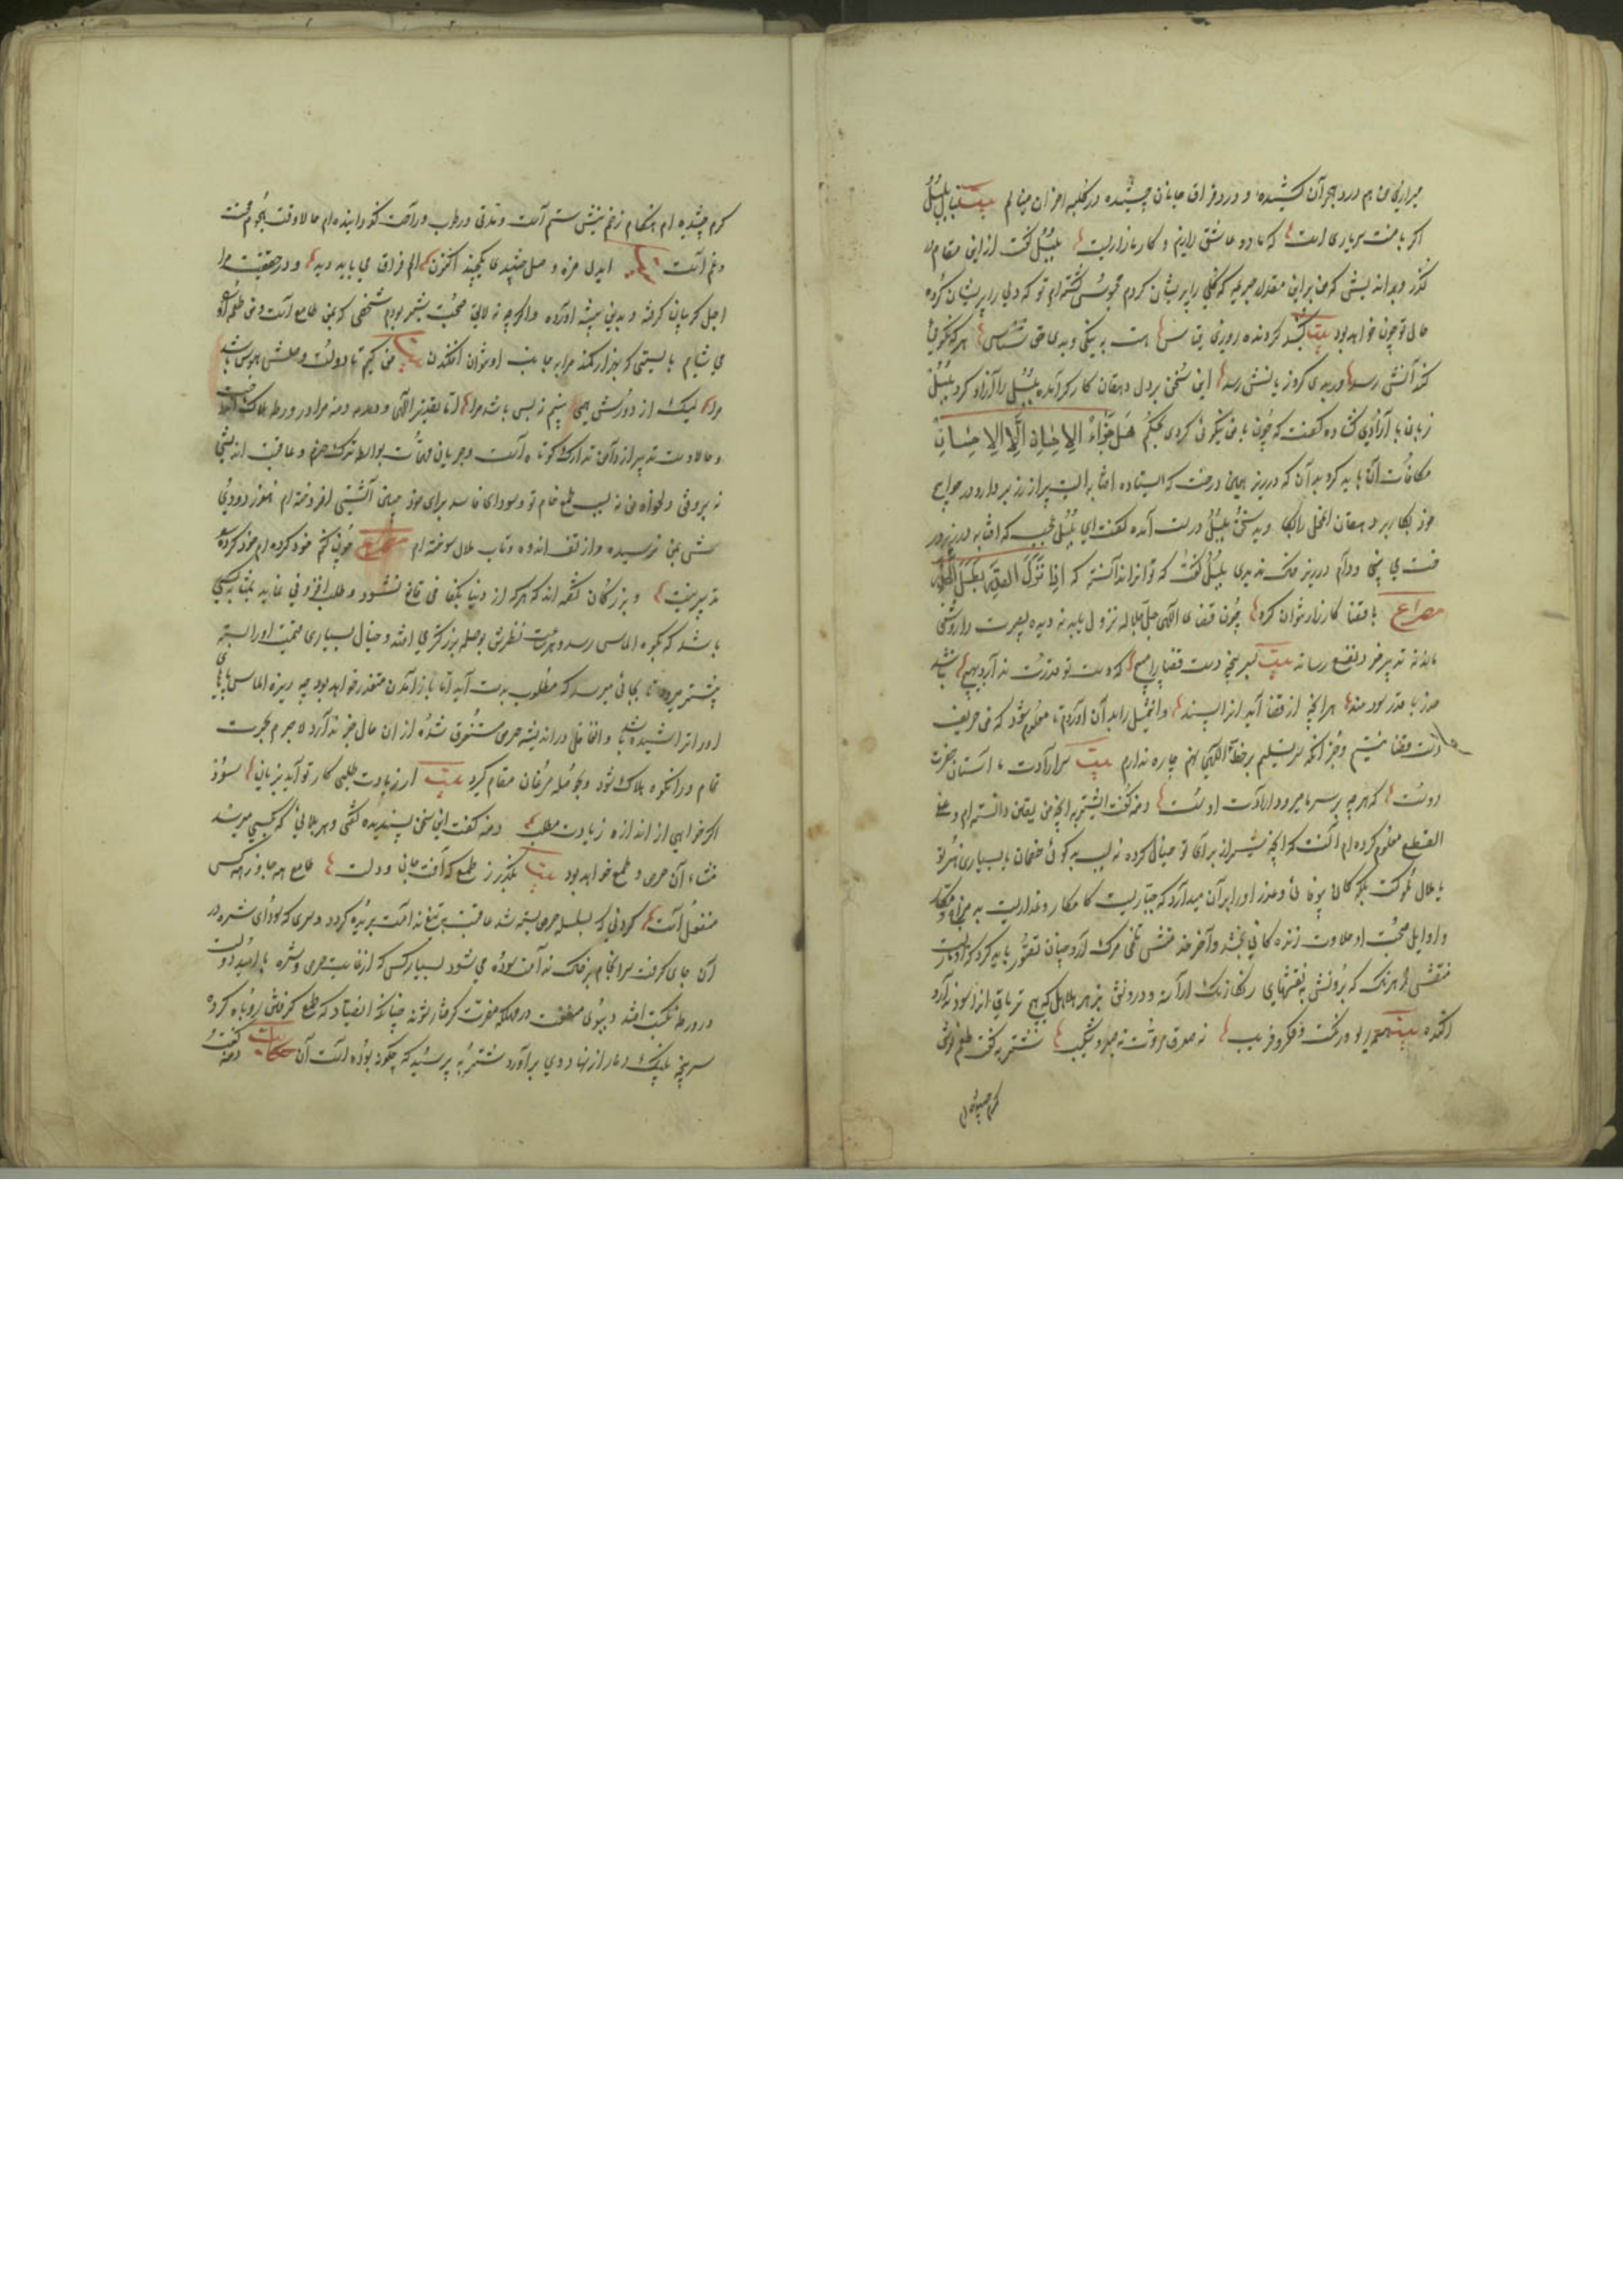 میزاری من هم درد هجرآن کشیده و درد فراق جانان چشیده در کلبه احزان مینالم بیت بنال بلبل
اکر با منت سر یاری است که ما دو عاشق زاریم و کار ما زاریست بلبل کفت ازین مقام در
کذر و بیاندیش که من برین مقدار جریمه که کلی را پریشان کردم محبوس کشته‌ام تو که دلی را پریشان کرده
حال تو چون خواهد بود بیت کنبد کردنده ز روی قیاس هست به نیکی و بدی حق شناس هر که نکویی
کند آنش رسد وربدی کرد زیانش رسد این سخن بر دل دهقان کارکر آمده بلبل را آزاد کرد بلبل
زبان بآزادی کشاده کفت که چون با من نیکویی کردی بحکم هَل جَزَاءُ الاِحسَانِ اِلَّا الاِحسَان
مکافات آن باید کرد بدان که در زیر همین درخت که ایستاده افتابه ایست پر از زر بردار و در حوایج
خود بکار بر دهقان آنمحل را بکاوید سخن بلبل درست آمده کفت ای بلبل عجب که افتابه در زیر
می بینی و دام در زیر خاک ندیدی بلبل کفت که تو ندانسته که اِذَا نَزَلَ القَدَرُ بَطَلَ الحَذَرُ
مصراع با قضا کارزار نتوان کرد چون قضای الهی جل جلاله نزول یابد نه دیده بصیرت را روشنی
ماند نه تدبیر خرد نفع رساند بیت سر پنجه دست قضا را مپیچ که دست تو قدرت ندارد بهیچ
حذر با قدر سود مند هر آنچه از قضا آید آنرا پسند و این مثل را بدان آوردم تا معلوم شود که من حریف
دست قضا نیستم و جز آنکه سر تسلیم بر خط الهی نهم چاره ندارم بیت سر ارادت ما آستان حضرت
دوست که هر چه بر سر ما میرود ارادت اوست دمنه کفت ای شنزبه آنچه من یقین دانسته‌ام و علی
القطع معلوم کرده‌ام آنست که آنچه شیر از برای تو خیال کرده نه بسبب بدکویی خصمان یا بسیاری هنر تو
یا ملال ملوکست بلکه کمال بیوفایی و غدر او را بر آن میدارد که جباریست کامکار و غداریست بد مزاج و مکار
و اوایل صحبت او حلاوت زندکانی بخشد و آخر خدمتش تلخی مرک آرد چنان تصور باید کرد که او ماریست
منقش هر رنک که برونش بنقشهای رنکارنک آراسته و درونش بزهر هلاهل که هیچ تریاق آنرا سود ندارد
آکنده بیت همه ریو و رنکست و مکر و فریب نه صدق مروت نه صبر و شکیب شنزبه کفت طعم نوش
کرم چشیده‌ام
کرم چشیده‌ام هنکام زخم نیش ستم است و مدتی در طرب و راحت کذرانیده‌ام حالا وقت هجوم محنت
و غم است ایدل مزه وصل چشیدی یکچند اکنون الم فراق می باید دید و در حقیقت مرا
اجل کریبان کرفته و بدین بیشه آورده و اکر چه نه لایق صحبت شیر بودم شخصی که بمن طامع است و من طعمه او
می شایم بایستی که بهزار کمند مرا بجانب او نتوان افکندن بیت من کیم تا دولت وصلش هوس باشد
مرا لیک از دورش همی بینم نه بس باشد مرا اما تقدیر الهی و دمدمه دمنه مرا در ورطه هلاکت انداخت
و حالا دست تدبیر از دامن تدارک کوتاه است و جریان مهمات بواسطه ترک حزم و عاقبت اندیشی
نه بر وفق دلخواه من نه بسبب طمع خام تو و سودای فاسد برای خود چنین آتشی افروخته‌ام هنوز دودی
بمن نرسیده و از تف اندوه و تاب ملال سوخته‌ام مصراع چون کنم خود کرده‌ام خود کرده را
تدبیر نیست و بزرکان کفته‌اند که هر که از دنیا بکفاف قانع نشود و طلب افزونی نماید بمثابه کسی
باشد که بکوه الماس رسد و هر ساعت نظرش بر قطعه بزرکتری افتد و خیال بسیاری قیمت او را بسته
پیشتر میرود تا بجائی میرسد که مطلوب بدست آید اما باز آمدن متعذر خواهد بود چه ریزه الماس پای
او را تراشیده باشد و آن غافل در اندیشه حرص مستغرق شده از آن حال خبر ندارد لاجرم بحسرت
تمام در آن کوه هلاک شود و بحوصله مرغان مقام کیرد بیت از زیادت طلبی کار تو آید بزیان سود
اکر خواهی از اندازه زیادت مطلب دمنه کفت این سخن پسندیده کفتی و هر بلائی که بکسی میرسد
منشاء آن حرص و طمع خواهد بود بیت بکذر ز طمع که آفت جان و دل است طامع همه جا و نزد همه کس
منفعل است کردنی که بسلسله حرص بسته شد عاقبت بتیغ ندامت بریده کردد و سری که سودای شره در
آن جای کرفت سرانجام بر خاک ندامت سوده می شود بسیار کس که از غایت حرص و شره بامید دولت
در ورطه نکبت افتد و ببوی منفعت در مهلکه مضرت کرفتار شود چنانکه آن صیاد که طمع کرفتن روباه کرد
سر پنجه پلنک دمار از نهاد وی برآورد شنزبه پرسید که چکونه بوده است آن حکایت دمنه کفت